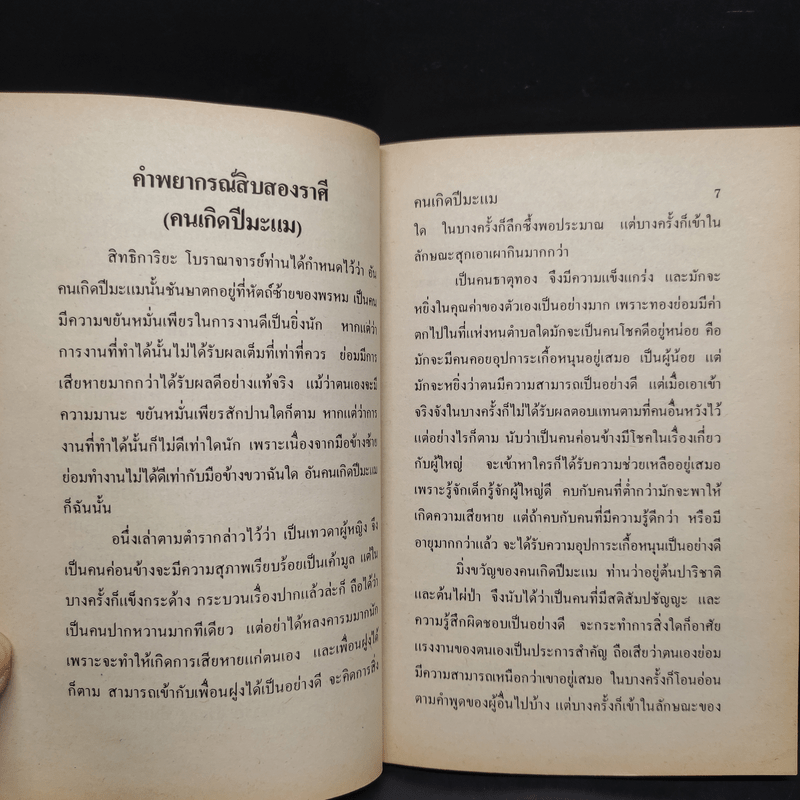 คำพยากรณ์สิบสองราศี
(คนเกิดปีมะแม)
สิทธิการิยะ โบราณาจารย์ท่านได้กำหนดไว้ว่า อัน
คนเกิดปีมะแมนั้นชันษาตกอยู่ที่หัตถ์ซ้ายของพรหม เป็นคน
มีความขยันหมั่นเพียรในการงานดีเป็นยิ่งนัก หากแต่ว่า
การงานที่ทำได้นั้นไม่ได้รับผลเต็มที่เท่าที่ควร ย่อมมีการ
เสียหายมากกว่าได้รับผลดีอย่างแท้จริง แม้ว่าตนเองจะมี
ความมานะ ขยันหมั่นเพียรสักปานใดก็ตาม หากแต่ว่าการ
งานที่ทำได้นั้นก็ไม่ดีเท่าใดนัก เพราะเนื่องจากมือข้างซ้าย
ย่อมทำงานไม่ได้ดีเท่ากับมือข้างขวาฉันใด อันคนเกิดปีมะแม
ก็ฉันนั้น
อนึ่งเล่าตามตำรากล่าวไว้ว่า เป็นเทวดาผู้หญิง จึง
เป็นคนค่อนข้างจะมีความสุภาพเรียบร้อยเป็นเค้ามูล แต่ใน
บางครั้งก็แข็งกระด้าง กระบวนเรื่องปากแล้วล่ะก็ ถือได้ว่า
เป็นคนปากหวานมากทีเดียว แต่อย่าได้หลงคารมมากนัก
เพราะจะทำให้เกิดการเสียหายแก่ตนเอง และเพื่อนฝูงได้
ก็ตาม สามารถเข้ากับเพื่อนฝูงได้เป็นอย่างดี จะคิดการสิ่ง
คนเกิดปีมะแม 7
ใด ในบางครั้งก็ลึกซึ้งพอประมาณ แต่บางครั้งก็เข้าใน
ลักษณะสุกเอาเผากินมากกว่า
เป็นคนธาตุทอง จึงมีความแข็งแกร่ง และมักจะ
หยิ่งในคุณค่าของตัวเองเป็นอย่างมาก เพราะทองย่อมมีค่า
ตกไปในที่แห่งหนตำบลใดมักจะเป็นคนโชคดีอยู่หน่อย คือ
มักจะมีคนคอยอุปการะเกื้อหนุนอยู่เสมอ เป็นผู้น้อย แต่
มักจะหยิ่งว่าตนมีความสามารถเป็นอย่างดี แต่เมื่อเอาเข้า
จริงจังในบางครั้งก็ไม่ได้รับผลตอบแทนตามที่คนอื่นหวังไว้
แต่อย่างไรก็ตาม นับว่าเป็นคนค่อนข้างมีโชคในเรื่องเกี่ยว
กับผู้ใหญ่ จะเข้าหาใครก็ได้รับความช่วยเหลืออยู่เสมอ
เพราะรู้จักเด็กรู้จักผู้ใหญ่ดี คบกับคนที่ต่ำกว่ามักจะพาให้
เกิดความเสียหาย แต่ถ้าคบกับคนที่มีความรู้ดีกว่า หรือมี
อายุมากกว่าแล้ว จะได้รับความอุปการะเกื้อหนุนเป็นอย่างดี
มิ่งขวัญของคนเกิดปีมะแม ท่านว่าอยู่ต้นปาริชาติ
และต้นไผ่ป่า จึงนับได้ว่าเป็นคนที่มีสติสัมปชัญญะ และ
ความรู้สึกผิดชอบเป็นอย่างดี จะกระทำการสิ่งใดก็อาศัย
แรงงานของตนเองเป็นประการสำคัญ ถือเสียว่าตนเองย่อม
มีความสามารถเหนือกว่าเขาอยู่เสมอ ในบางครั้งก็โอนอ่อน
ตามคำพูดของผู้อื่นไปบ้าง แต่บางครั้งก็เข้าในลักษณะของ